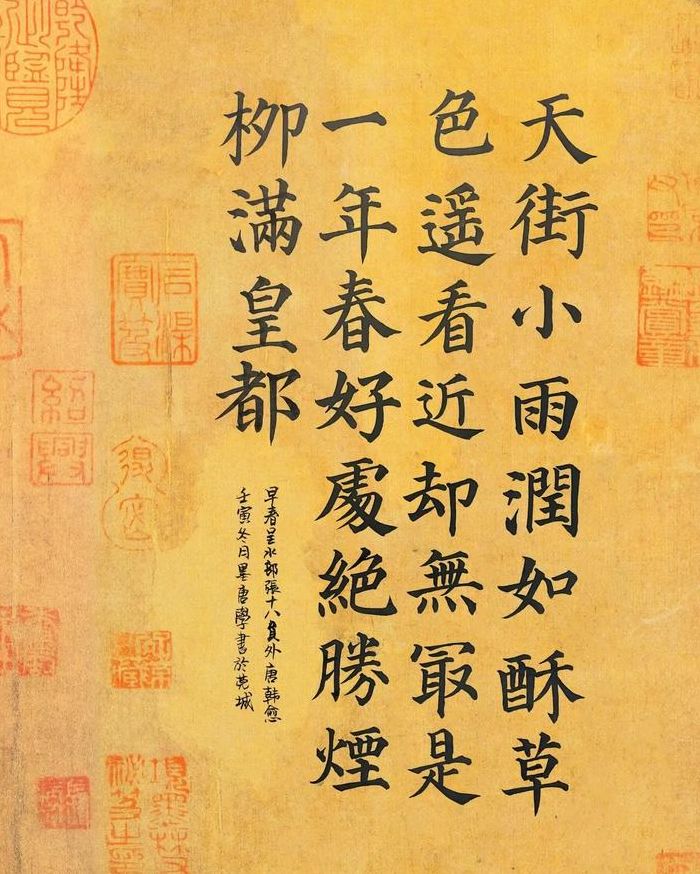 天街小雨潤如酥草
色遥看近却無冣是
一年春好處絶勝煙
柳滿皇都
早春呈水部張十八員外唐韓愈
壬寅冬月墨唐學書於莞城
紹
興